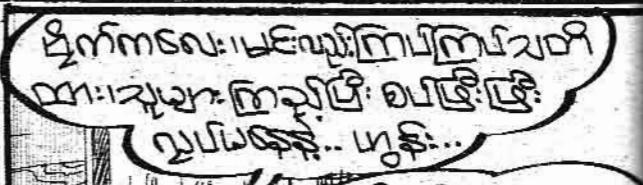 မိုက်ကလေး၊မင်းလည်းကြပ်ကြပ်သတိ
ထား၊သူများကြည့်ပြီး စပ်ဖြီးဖြီး
လုပ်မနေနဲ့... ဟွန်း...